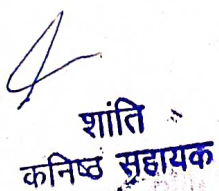 शांति
कनिष्ठ सहायक